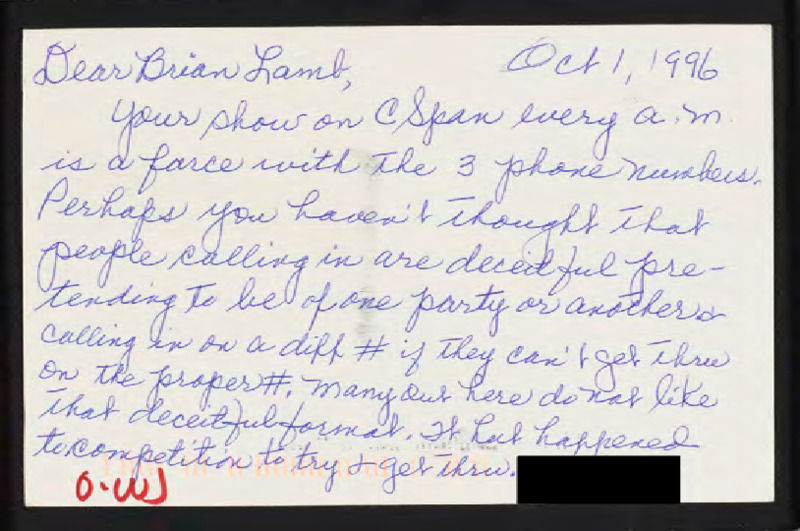 Dear Brian Lamb, Oct 1, 1996
Your show on C Span every a.m.
is a farce with the 3 phone numbers.
Perhaps you haven't thought that
people calling in are deceitful pre-
tending to be of one party or another &
calling in on a diff # if they can't get thru
on the proper #. Many out here do not like
that deceitful format. It hat happened
to competition to try & get thru.